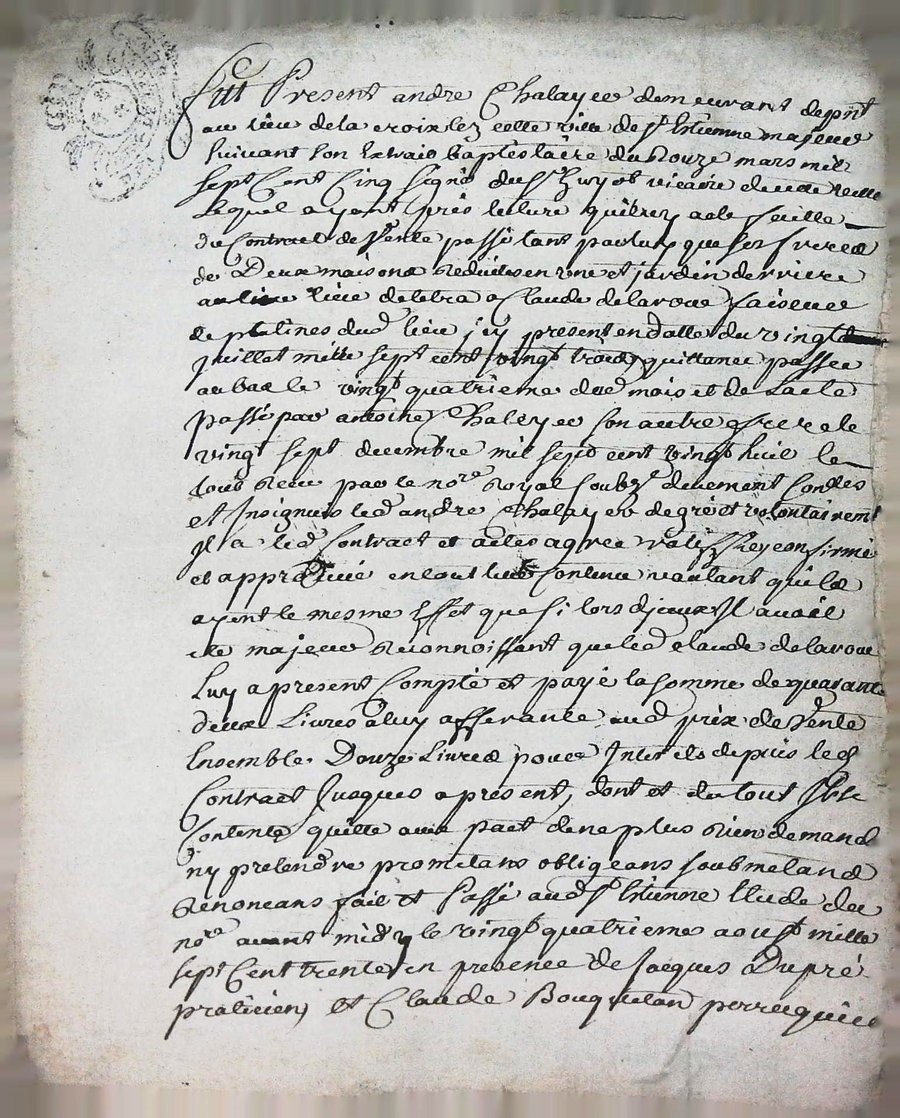 Fut Present andre Chalayer demeurant de pnt
au lieu de la croix lez cette ville de st Etienne majeur
suivant son Extrait baptistaire du douze mars mil
sept Cent Cinq signé du sr Guyot vicaire
Lequel ayant pris lecture qu'il
du Contract de Vente passé tant par luy que ses freres
de Deux maisons reduites en une et jardin derriere
au lieu a Claude delaroue faiseur
de platines dud lieu jcy present en datte du vingt
juillet mille sept cent vingt trois quittance passee
au bas le vingt quatrieme dud mois et de Lacte
passé par antoine Chalayer son autre frere le
vingt sept decembre mil sept cent vingt huit le
tout receu par le nore Royal soubzne duement Contlés
et Insignués led andre Chalayer de gré et volontairemt
Jl a led Contract et actes agreé ratiffié confirmé
et approuvé en tout leur Contenu voulant quils
ayent le mesme Effet que si lors djceux Jl avoit
ete majeur Reconnoissant que led claude delaroue
Luy a present Compté et payé la somme de quarante
deux Livres a luy afferante aud prix de Vente
Ensemble Douze Livres pour Interets depuis led
Contract Jusques a present, dont et du tout Jl se
Contente quitte avec pact de ne plus Rien demandr
ny pretendre promettans obligeans soubmettans
Renoncans fait et Passé aud st Etienne Etude du
nore avant midy le vingt quatrieme aoust mille
sept Cent trente en presence de Jacques Dupré
praticien et Claude Bouquetan perruquier